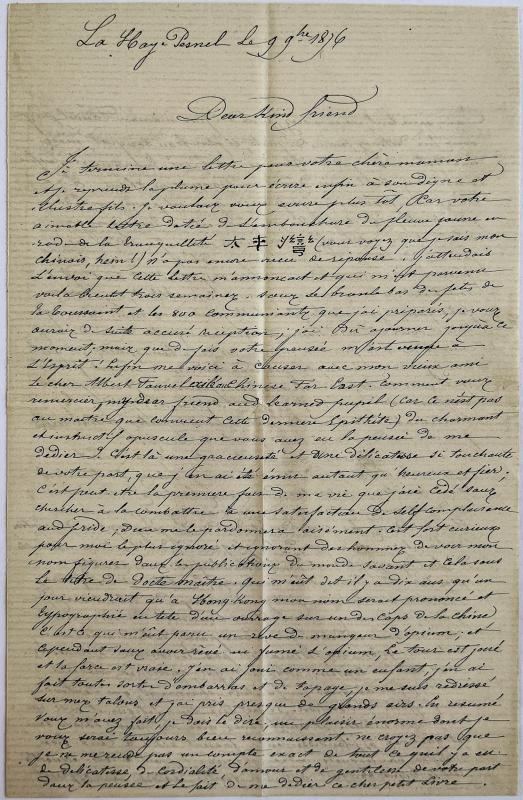 La Haye Pesnel le 9 9bre 1876
Dear kind friend
Je termine une lettre pour votre chère maman
et je reprends la plume pour écrire enfin à son digne et
illustre fils. Je voulais vous écrire plus tôt. Car votre
aimable lettre datée de l'embouchure du fleuve jaune en
rade de la Tranquillité 太平灣 (vous voyez que je sais mon
chinois, hein!) n'a pas encore reçu de réponse; j'attendais
l'envoi que cette lettre m'annonçait et qui m'est parvenu
voilà bientôt trois semaines. Sans le branle bas des fêtes de
la Toussaint et les 800 communiants que j'ai préparés, je vous
aurais de suite accusé réception; j'ai dû ajourner jusqu'à ce
moment. mais que de fois votre pensée m'est venue à
l'esprit! Enfin me voici à causer avec mon vieux ami
le cher Albert Fauvel Chinese Far East. Comment vous
remercier, my dear friend and learned pupil (Car ce n'est pas
au maître que convient cette dernière Epithète) du charmant
opuscule que vous avez eu la pensée de me
dédier? C'est là une gracieuseté et une délicatesse si touchante
de votre part, que j'en ai été ému autant qu'heureux et fier.
C'est peut-être la première fois de ma vie que j'aie cédé sans
chercher à la combattre à une satisfaction de self complaisance
and pride; Dieu me le pardonnera aisément. C'est fort curieux
pour moi le plus ignoré et ignorant des hommes de voir mon
nom figurer dans les publications du monde savant et cela sous
le titre de docte maître. Qui m'eût dit il y a dix ans, qu'un
jour viendrait qu'à Hong-Kong mon nom serait prononcé et
typographié en tête d'un ouvrage sur un des caps de la Chine
C'est ce qui m'eût paru un rêve de mangeur d'opium; et
cependant sans avoir rêvé ou fumé l'opium, le tour est joué
et la farce est vraie. J'en ai joui comme un enfant, j'en ai
fait toute sorte d'embarras et de tapage, je me suis redressé
sur mes talons et j'ai pris presque de grands airs. En résumé
vous m'avez fait, je dois le dire, un plaisir énorme dont je
vous serai toujours bien reconnaissant. ne croyez pas que
je ne me rende pas un compte exact de tout ce qu'il y a eu
de délicatesse, de cordialité d'amour et de gentillesse de votre part
dans la pensée et le fait de me dédier ce cher petit livre.